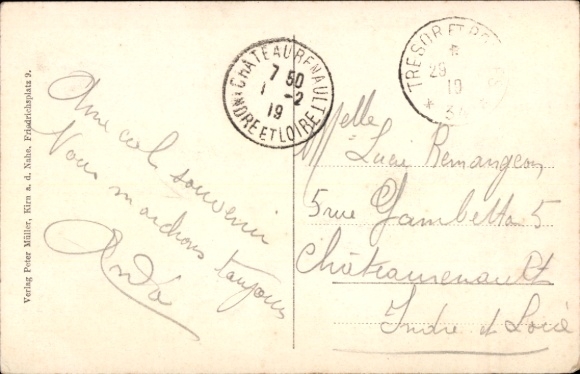 Verlag Peter Müller, Kirn a. d. Nahe, Friedrichsplatz 9.
Amical souvenir
Nous marchons toujours
CHÂTEAURENAULT
7 50
1 -2
19
INDRE ET LOIRE
TRESOR ET POSTES
*
29
10
* 34 *
Melle
Lucie Remangeon
5 rue Gambetta 5
Châteaurenault
Indre et Loire